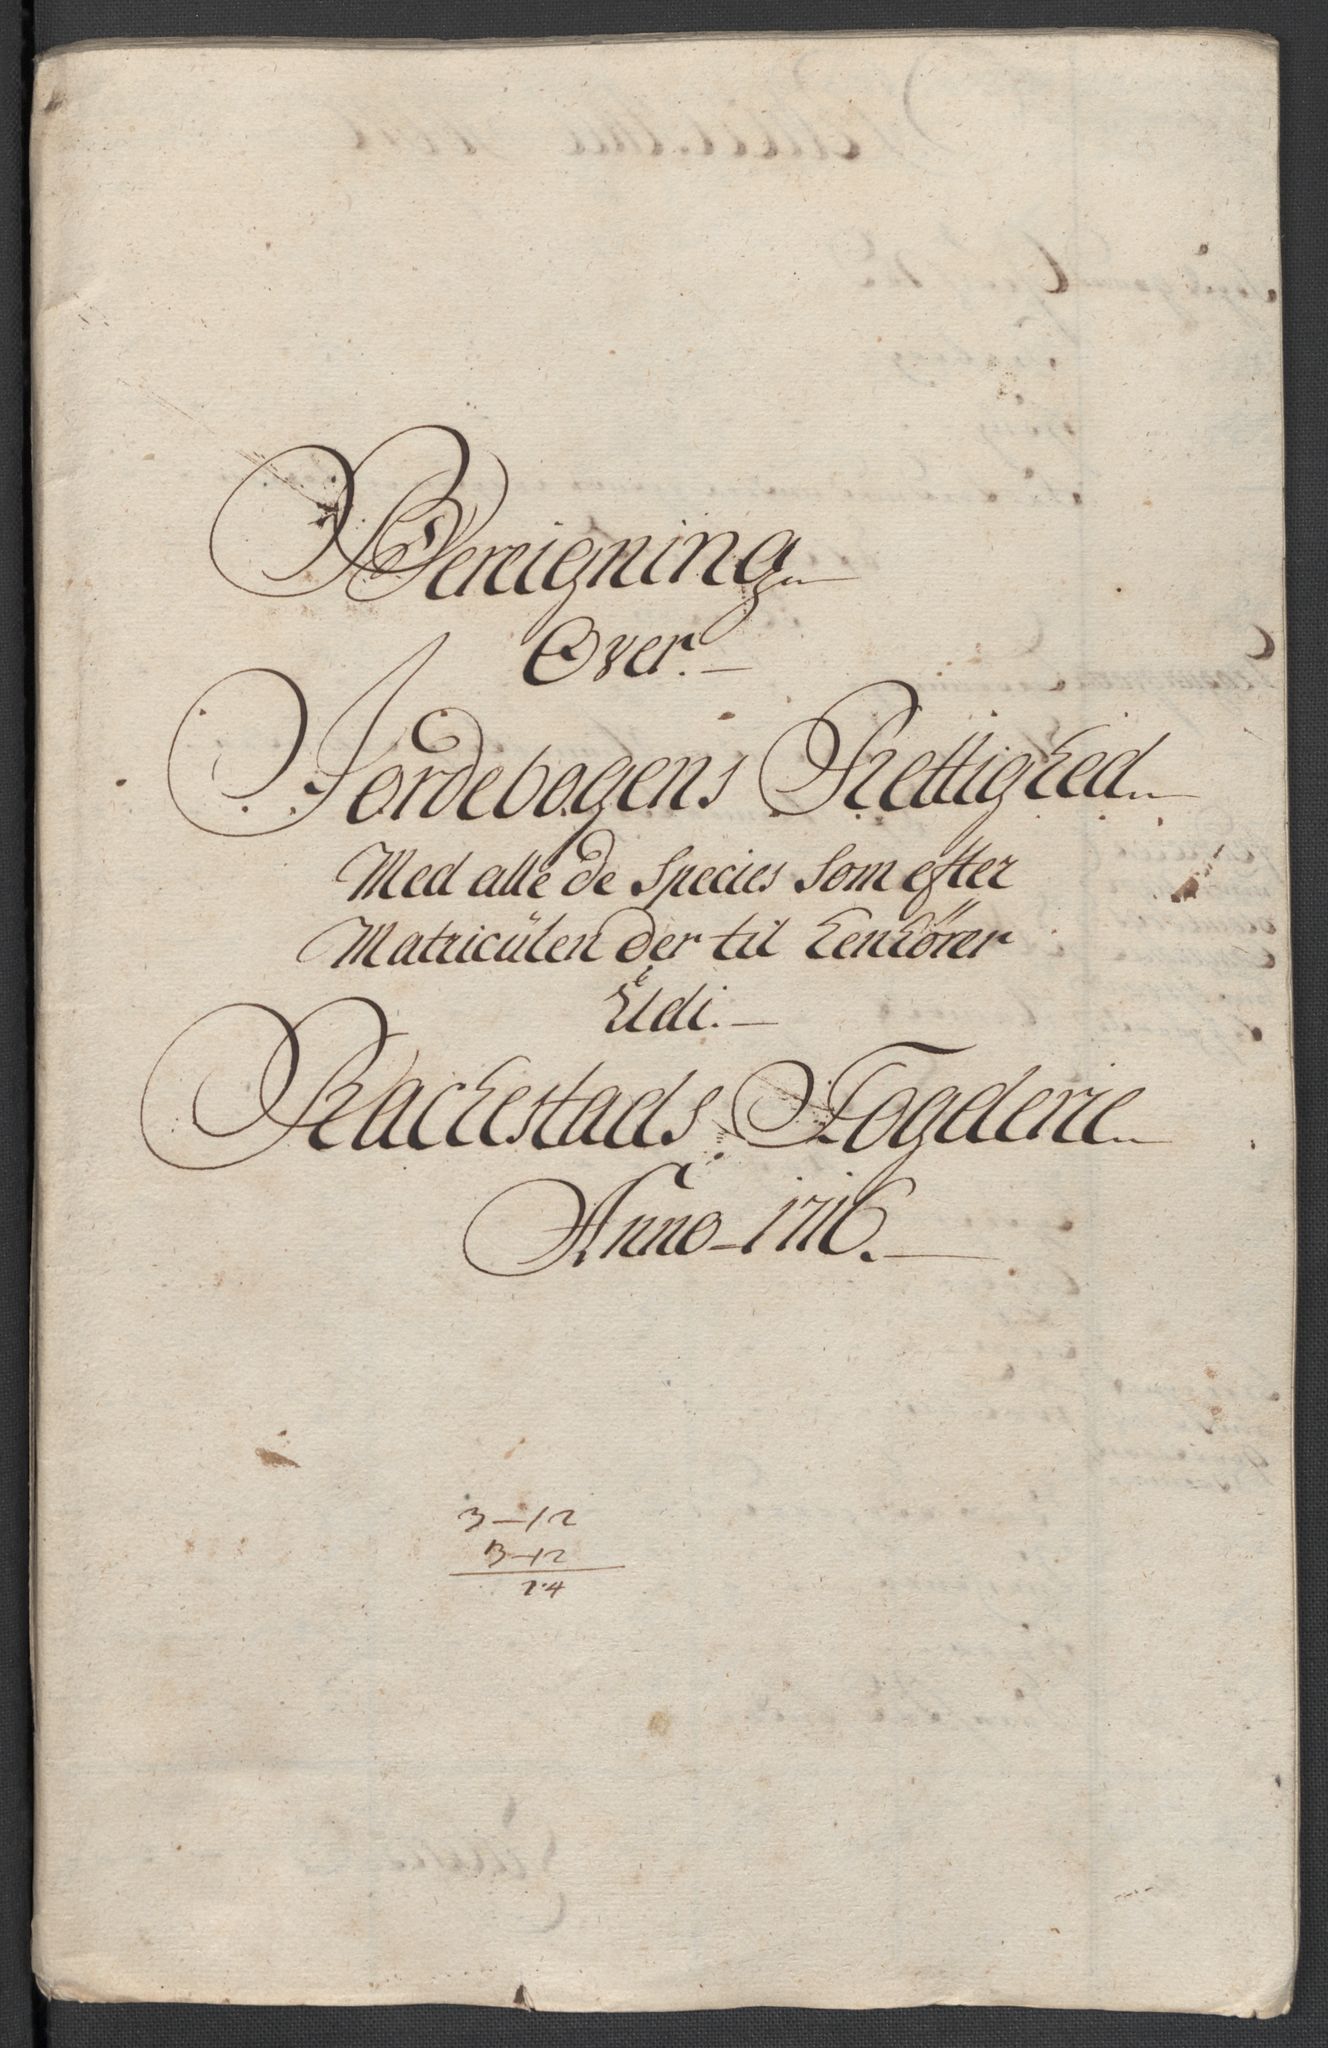 Bereigning
Over.
Jordebogens Rettighed
Med alle de Species Som efter
Matricülen der til henhörer
Udi.
Rackestads Fogderie
Anno 1716.
3-12
3-12
24